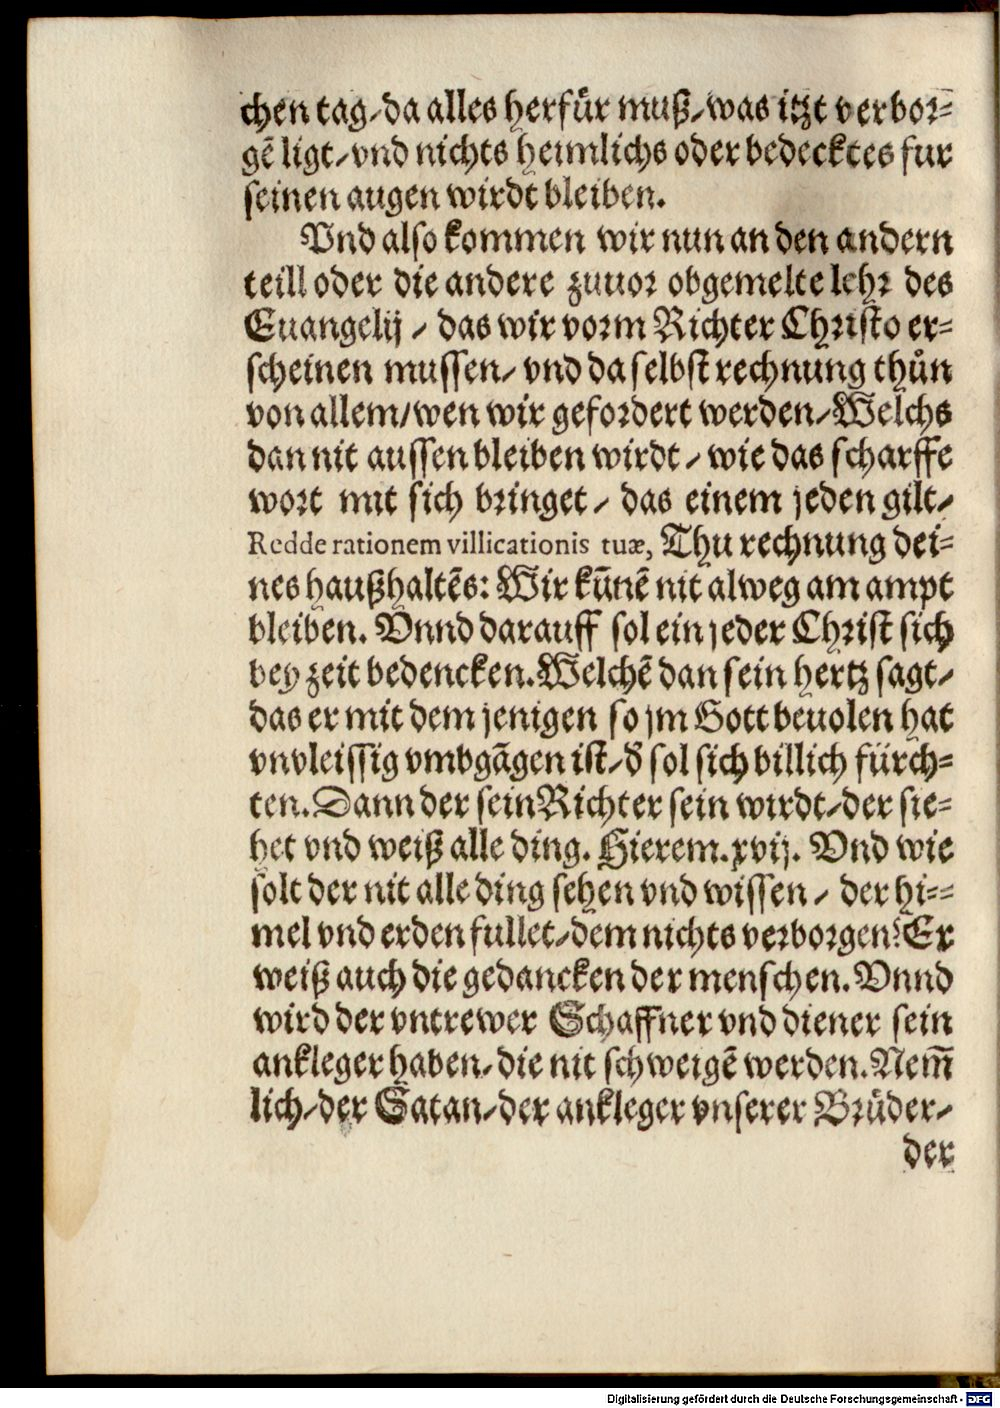 chen tag/da alles herfür muß/was itzt verbor-
gē ligt/vnd nichts heimlichs oder bedecktes fur
seinen augen wirdt bleiben.
Vnd also kommen wir nun an den andern
teill oder die andere zuuor obgemelte lehr des
Euangelij / das wir vorm Richter Christo er-
scheinen mussen/ vnd daselbst rechnung thůn
von allem/wen wir gefordert werden/Welchs
dan nit aussen bleiben wirdt / wie das scharffe
wort mit sich bringet / das einem jeden gilt/
Redde rationem villicationis tuæ, Thu rechnung dei-
nes haußhaltēs: Wir kūnē nit alweg am ampt
bleiben. Vnnd darauff sol ein jeder Christ sich
bey zeit bedencken. Welchē dan sein hertz sagt/
das er mit dem jenigen so jm Gott beuolen hat
vnvleissig vmbgāgen ist/ď sol sich billich fürch-
ten. Dann der sein Richter sein wirdt/der sie-
het vnd weiß alle ding. Hierem. xvij. Vnd wie
solt der nit alle ding sehen vnd wissen / der hi-
mel vnd erden fullet/dem nichts verborgen? Er
weiß auch die gedancken der menschen. Vnnd
wird der vntrewer Schaffner vnd diener sein
ankleger haben/die nit schweigē werden. Nem̄
lich/der Satan/der ankleger vnserer Brüder/
der
Digitalisierung gefördert durch die Deutsche Forschungsgemeinschaft - DFG